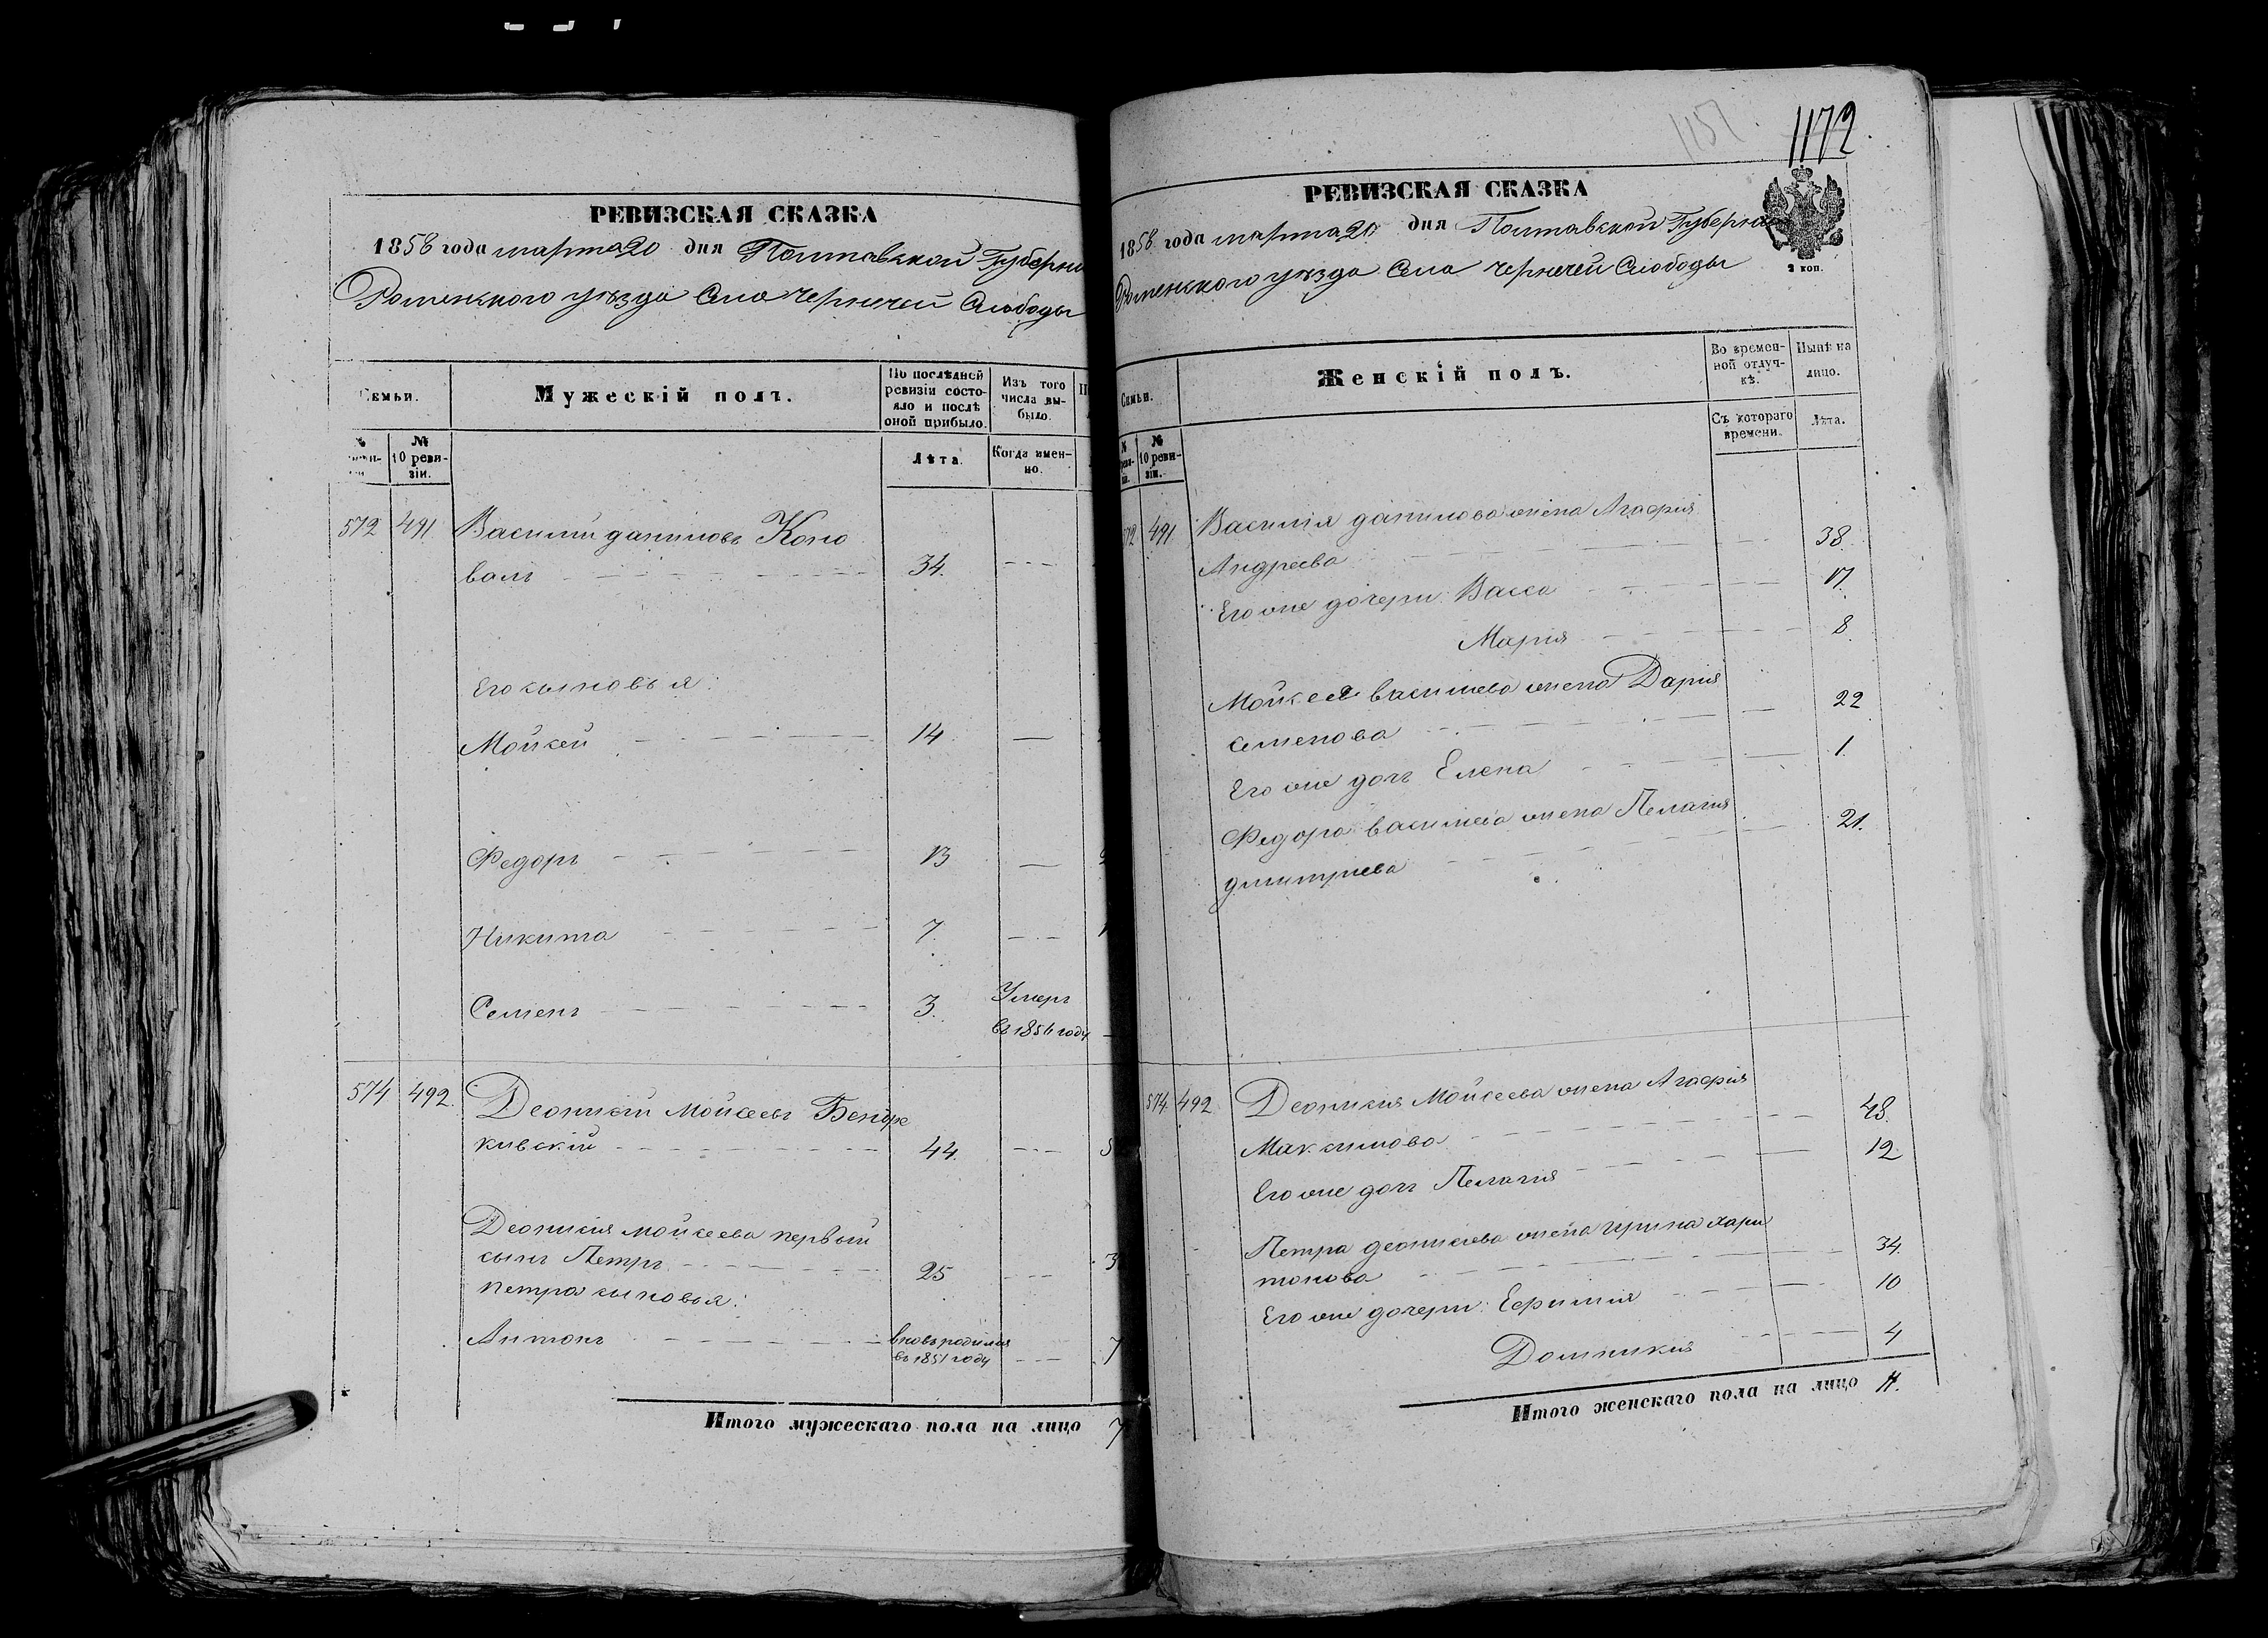 РЕВИЗСКАЯ СКАЗКА
1858 года марта 20 дня Полтавской Губерни
Роменского уѣзда Села Чернечей Слободы
Семьи.
Мужескій полъ.
По послѣдней ревизіи состояло и послѣ оной прибыло.
Изъ того числа выбыло.
№ 10 ревизіи.
Лѣта.
Когда именно.
572 491 Василий даниловъ Коно
валъ 34.
Его сыновья:
Мойсей 14
Федоръ 13
Никита 7.
Семенъ 3. Умеръ
въ 1856 году
574 492 Деонисій Мойсеевъ Бендре
кивскій 44.
Деонисія мойсеева первый
сынъ Петръ 25
Петра сыновья:
Антонъ вновь родился
въ 1851 году 7
Итого мужескаго пола на лицо 7
1157.
1172.
РЕВИЗСКАЯ СКАЗКА
1858 года марта 20 дня Полтавской Губерни
Роменского уѣзда Села Чернечей Слободы
2 коп.
Семьи.
Женскій полъ.
Во временной отлучкѣ.
Нынѣ на лицо.
№ 10 ревизіи.
Съ котораго времени.
Лѣта.
572 491 Василія данилова жена Агафия
Андреева 38.
Его же дочери: Васса 17.
Мария 8.
Мойсея васильева жена Дария
семенова 22
Его же дочь Елена 1.
Федора васильева жена Пелагия
дмитриева 21.
574 492 Деонисия Мойсеева жена Агафия
Максимова 48.
Его же дочь Пелагия 12
Петра деонисиева жена Ирина хари
тонова 34.
Его же дочери: Евфимия 10
Домникия 4
Итого женскаго пола на лицо 11.